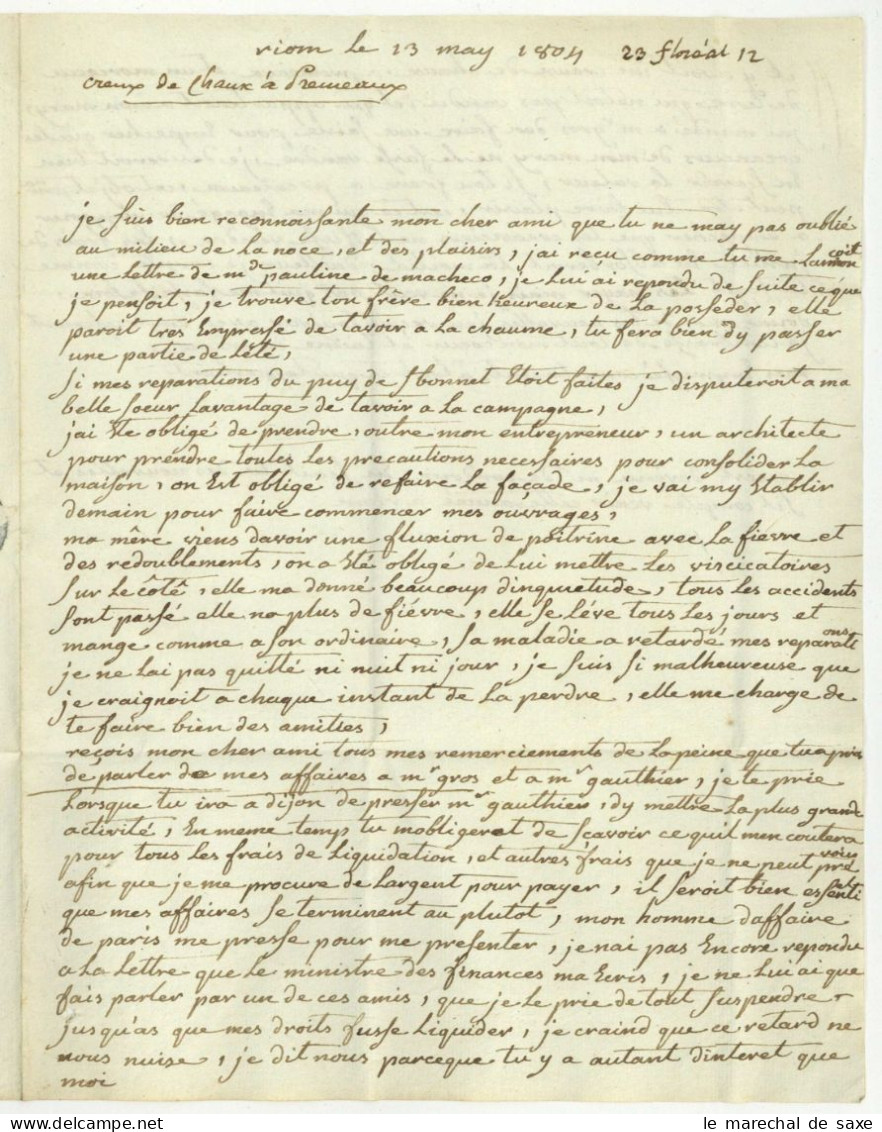 riom le 13 may 1804 23 floréal 12
creux de Chaux à Premeaux
je suis bien reconnoissante mon cher ami que tu ne may pas oublié
au milieu de la noce, et des plaisirs, j'ai reçu comme tu me lannonçoit
une lettre de mde pauline de macheco, je lui ai repondu de suite ce que
je pensoit, je trouve ton frère bien heureux de la posseder, elle
paroit tres empressé de tavoir a la chaume, tu fera bien dy passer
une partie de lété,
Si mes reparations du puy de St bonnet etoit faites je disputeroit a ma
belle soeur lavantage de tavoir a la campagne,
jai ete obligé de prendre, outre mon entrepreneur, un architecte
pour prendre toutes les precautions necessaires pour consolider la
maison, on est obligé de refaire la façade, je vai my etablir
demain pour faire commencer mes ouvrages,
ma mère viens davoir une fluxion de poitrine avec la fievre et
des redoublements, on a été obligé de lui mettre les viscicatoires
sur le côté, elle ma donné beaucoup dinquietude, tous les accidents
sont passé elle na plus de fiévre, elle se léve tous les jours et
mange comme a son ordinaire, sa maladie a retardé mes reparations
je ne lai pas quitté ni nuit ni jour, je suis si malheureuse que
je craignoit a chaque instant de la perdre, elle me charge de
te faire bien des amities,
reçois mon cher ami tous mes remerciements de la peine que tu a pris
de parler de mes affaires a mr gros et a mr gauthier, je te prie
lorsque tu ira a dijon de presser mr gauthier, dy mettre la plus grande
activité, en meme temp tu mobligerat de scavoir ce quil men coutera
pour tous les frais de liquidation, et autres frais que je ne peut prévoir
afin que je me procure de largent pour payer, il seroit bien essentiel
que mes affaires se terminent au plutot, mon homme daffaire
de paris me presse pour me presenter, je nai pas encore repondu
a la lettre que le ministre des finances ma ecris, je ne lui ai que
fais parler par un de ces amis, que je le prie de tout suspendre
jusqu'as que mes droits fusse liquider, je craind que ce retard ne
nous nuise, je dit nous parceque tu y a autant dinteret que
moi
le marechal de saxe